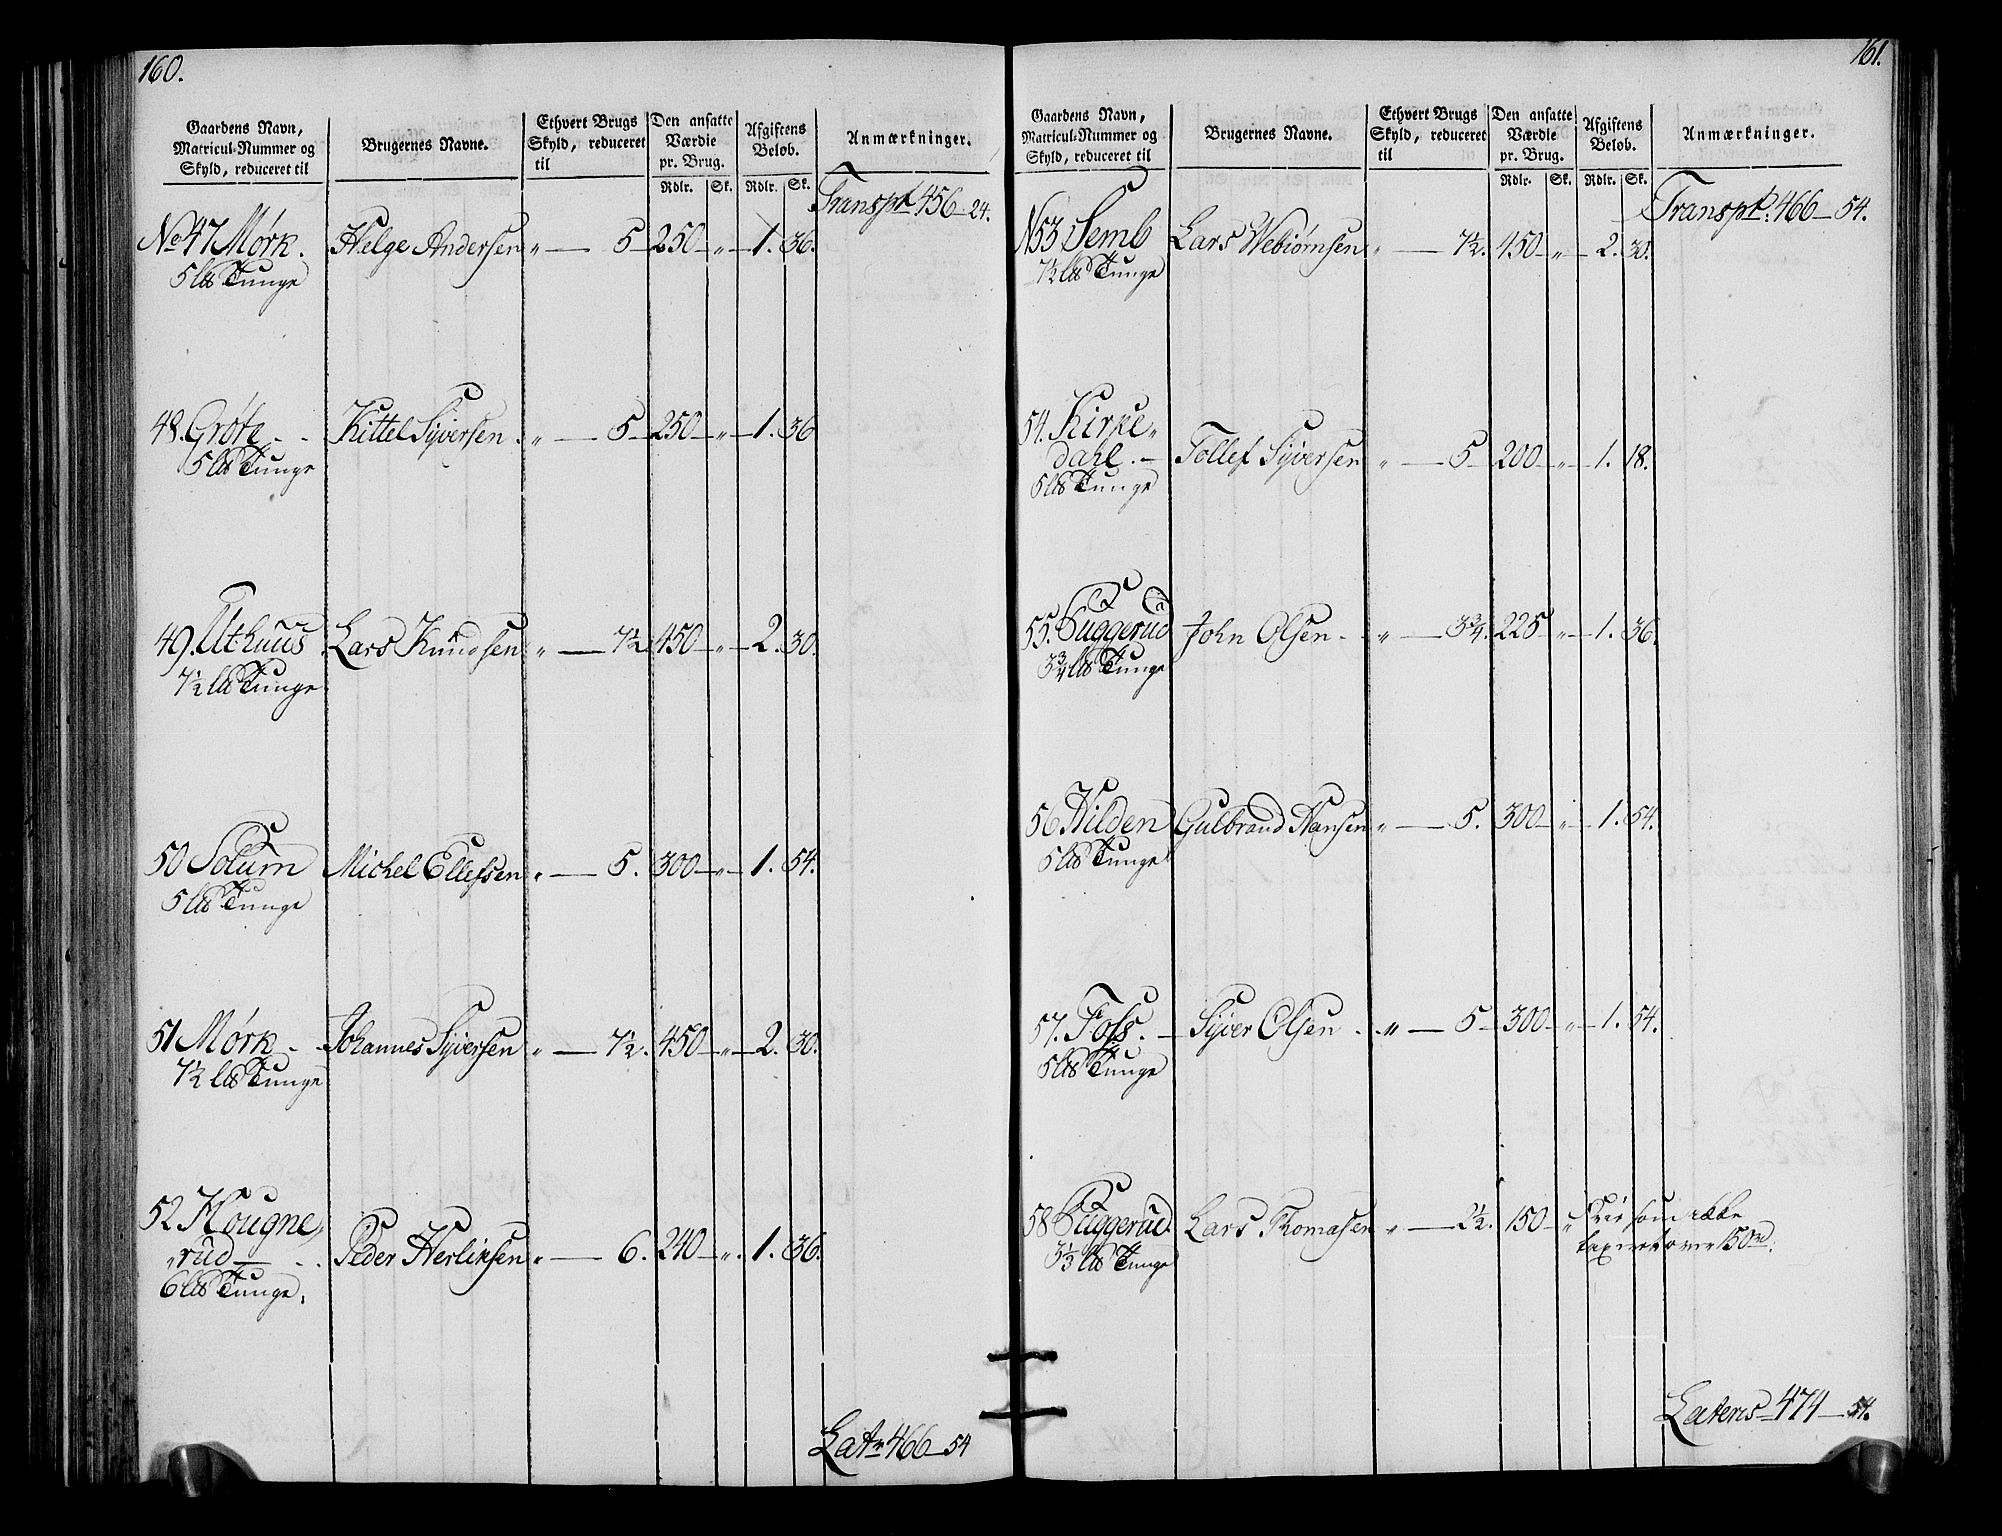 160.
Gaardens Navn, Matricul-Nummer og Skyld, reduceret til
Brugernes Navne.
Ethvert Brugs Skyld, reduceret til
Den ansatte Værdie pr. Brug.
Afgiftens Beløb.
Anmærkninger.
Rdlr. Sk. Rdlr. Sk.
Transpt 456 — 24.
No 47 Mørk. Helge Andersen „ — 5 — 250 — „ — 1. 36.
5 lb Tunge
48. Grøte - - Kittel Syversen „ — 5 — 250 — „ — 1. 36
5 lb Tunge
49. Uthuus Lars Knudsen „ — 7½ 450 — „ — 2. 30.
7½ lb Tunge
50 Solum Michel Ellefsen „ — 5. 300 — „ — 1. 54.
5 lb Tunge
51 Mørk - - Johannes Syversen „ — 7½. 450 — „ — 2. 30.
7½ lb Tunge
52 Hougne„
„rud — Peder Herliksen „ — 6. 240 — „. 1. 36.
6 lb Tunge.
Latr 466 — 54
161.
Gaardens Navn, Matricul-Nummer og Skyld, reduceret til
Brugernes Navne.
Ethvert Brugs Skyld, reduceret til
Den ansatte Værdie pr. Brug.
Afgiftens Beløb.
Anmærkninger.
Rdlr. Sk. Rdlr. Sk.
Transpt. 466 — 54.
N 53 Semb Lars Webiørnsen „ — 7½. 450 — „ — 2. 30.
7½ lb Tunge
54. Kirke„
dahl. — Tollef Syversen „ — 5 — 200 — „ — 1. 18.
5 lb Tunge
55. Tuggerud John Olsen - „ — 3¾. 225 — „ — 1. 36.
3¾ lb Tunge
56 Hilden Gulbrand Hansen „ — 5. 300 — „ — 1. 54.
5 lb Tunge
57. Foss. — Syver Olsen . „ — 5 — 300 — „ — 1. 54.
5 lb Tunge
58 Tuggerud Lars Thomasen „ — 2½. 150 — „ som ikke
5⅓ lb Tunge taxeret over 150 rd.
Lateris 474 — 54.